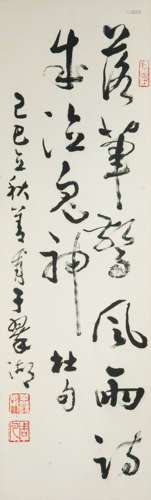 落筆驚風雨詩
成泣鬼神 杜句
己巳立秋 于翠湖